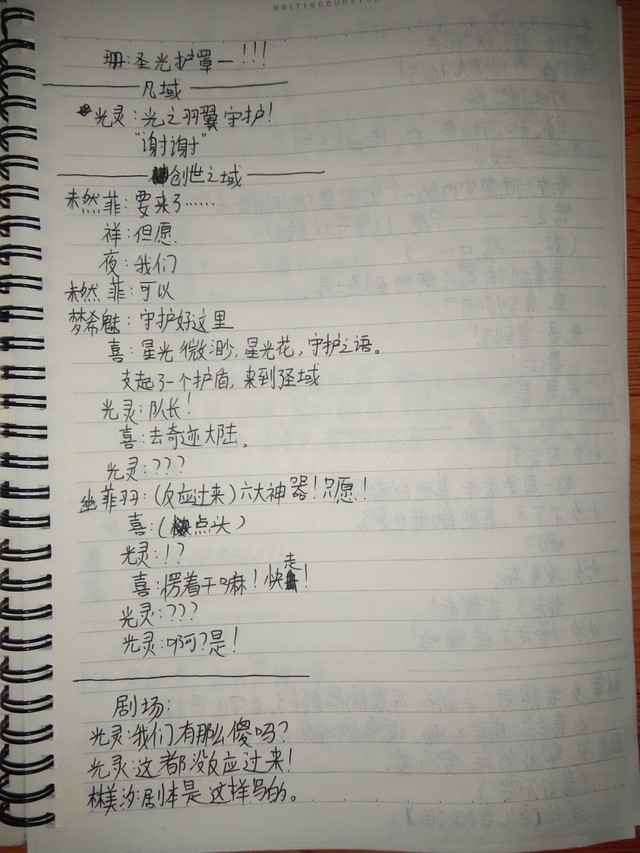 WRITINGCOURSTO
珊:圣光护罩一!!!
凡域
光灵:光之羽翼守护!
"谢谢"
创世之域
未然菲:要来了……
祥:但愿
夜:我们
未然菲:可以
梦希魅:守护好这里
喜:星光微渺,星光花,守护之语。
支起了一个护盾,来到圣域
光灵:队长!
喜:去奇迹大陆。
光灵:???
幽菲羽:(反应过来)六大神器!只愿!
喜:(点头)
光灵:!?
喜:愣着干嘛!快走!
光灵:???
光灵:啊?是!
剧场:
光灵:我们有那么傻吗?
光灵:这都没反应过来!
林美汐:剧本是这样写的。